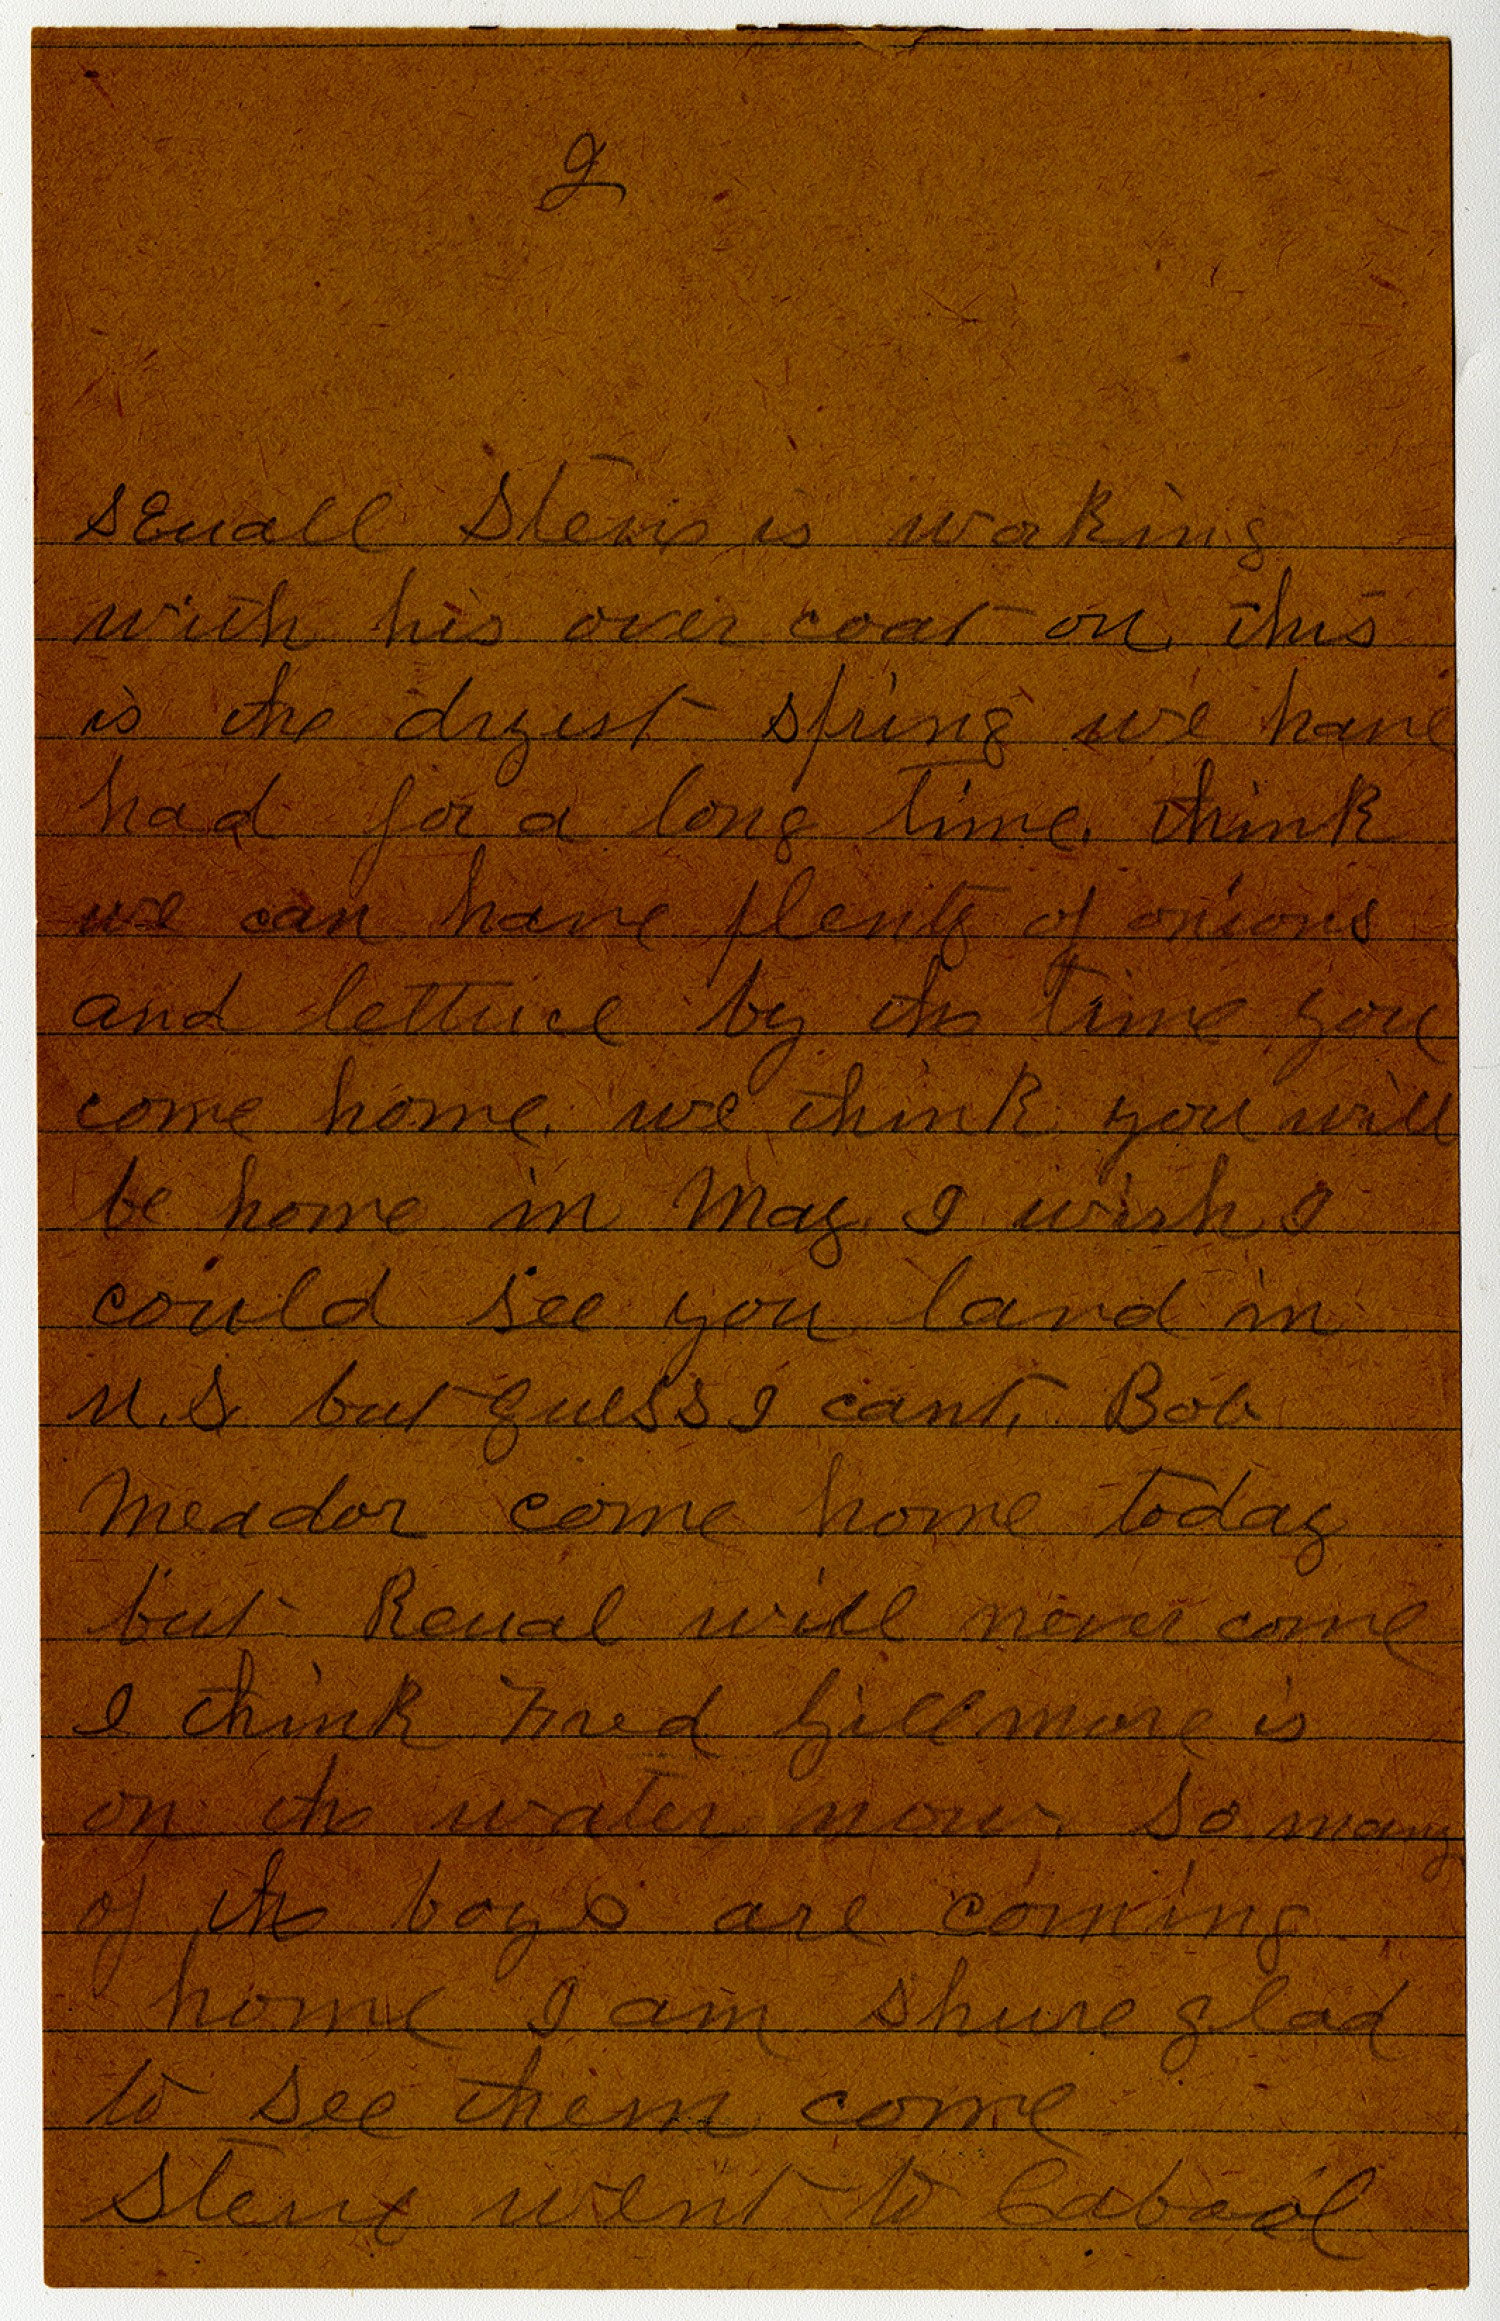 2
squall Steve is working
with his over coat on, this
is the dryest spring we have
had for a long time. think
we can have plenty of onions
and lettuce by the time you
come home. we think you will
be home in May. I wish I
could see you land in
U.S. but guess I cant. Bob
Meador come home today
but Reual will never come
I think Fred Gillmore is
on the water now. So many
of the boys are coming
home I am shure glad
to see them come
Steve went to Cabool